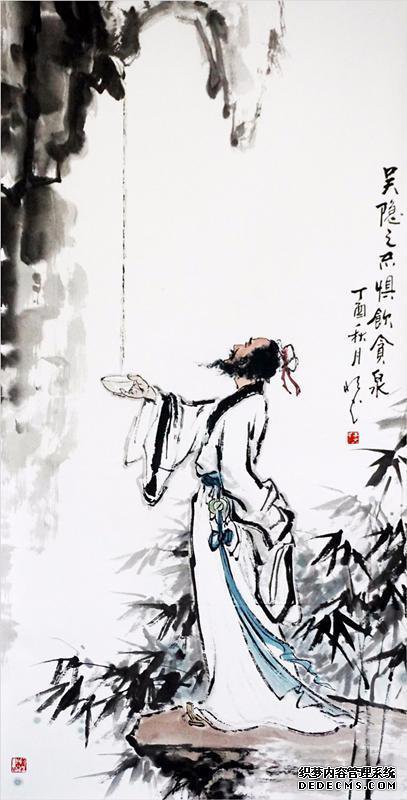 吴隐之不惧飲貪泉
丁酉秋月
织梦内容管理系统
DEDECMS.COM